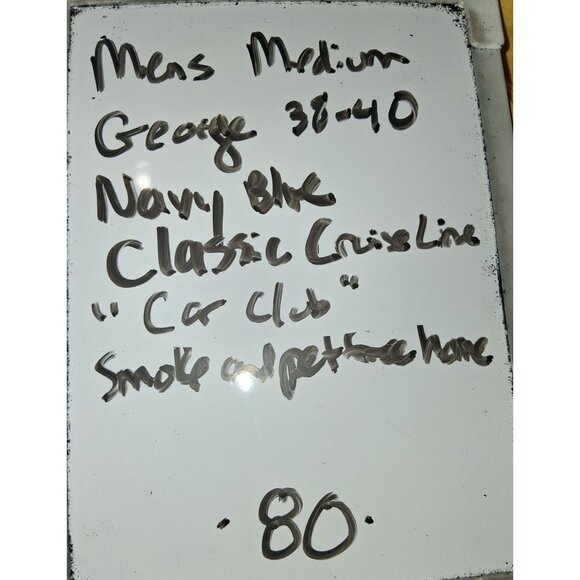 Mens Medium
George 38-40
Navy Blue
Classic Cruise Line
"Car Club"
Smoke and pet free home
· 80 ·